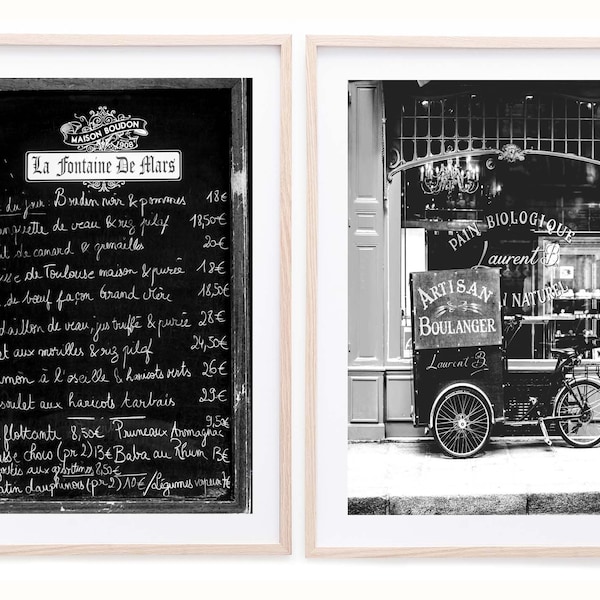 MAISON BOUDON
1908
La Fontaine De Mars
du jour: Boudin noir & pommes 18€
nquette de veau & riz pilaf 18,50€
t de canard & grenailles 20€
isse de Toulouse maison & purée 18€
de bœuf façon Grand Mère 18,50€
daillon de veau, jus truffé & purée 28€
et aux morilles & riz pilaf 24,50€
mon à l'oseille & haricots verts 26€
oulet aux haricots tarbais 29€
9,50€
flottante 8,50€ Pruneaux Armagnac
sse choco (pr 2) 13€ Baba au Rhum 13€
8,50€
tin dauphinois (pr 2) 10€ / Légumes vapeur 7€
PAIN BIOLOGIQUE
Laurent B.
NATUREL
ARTISAN
BOULANGER
Laurent B.